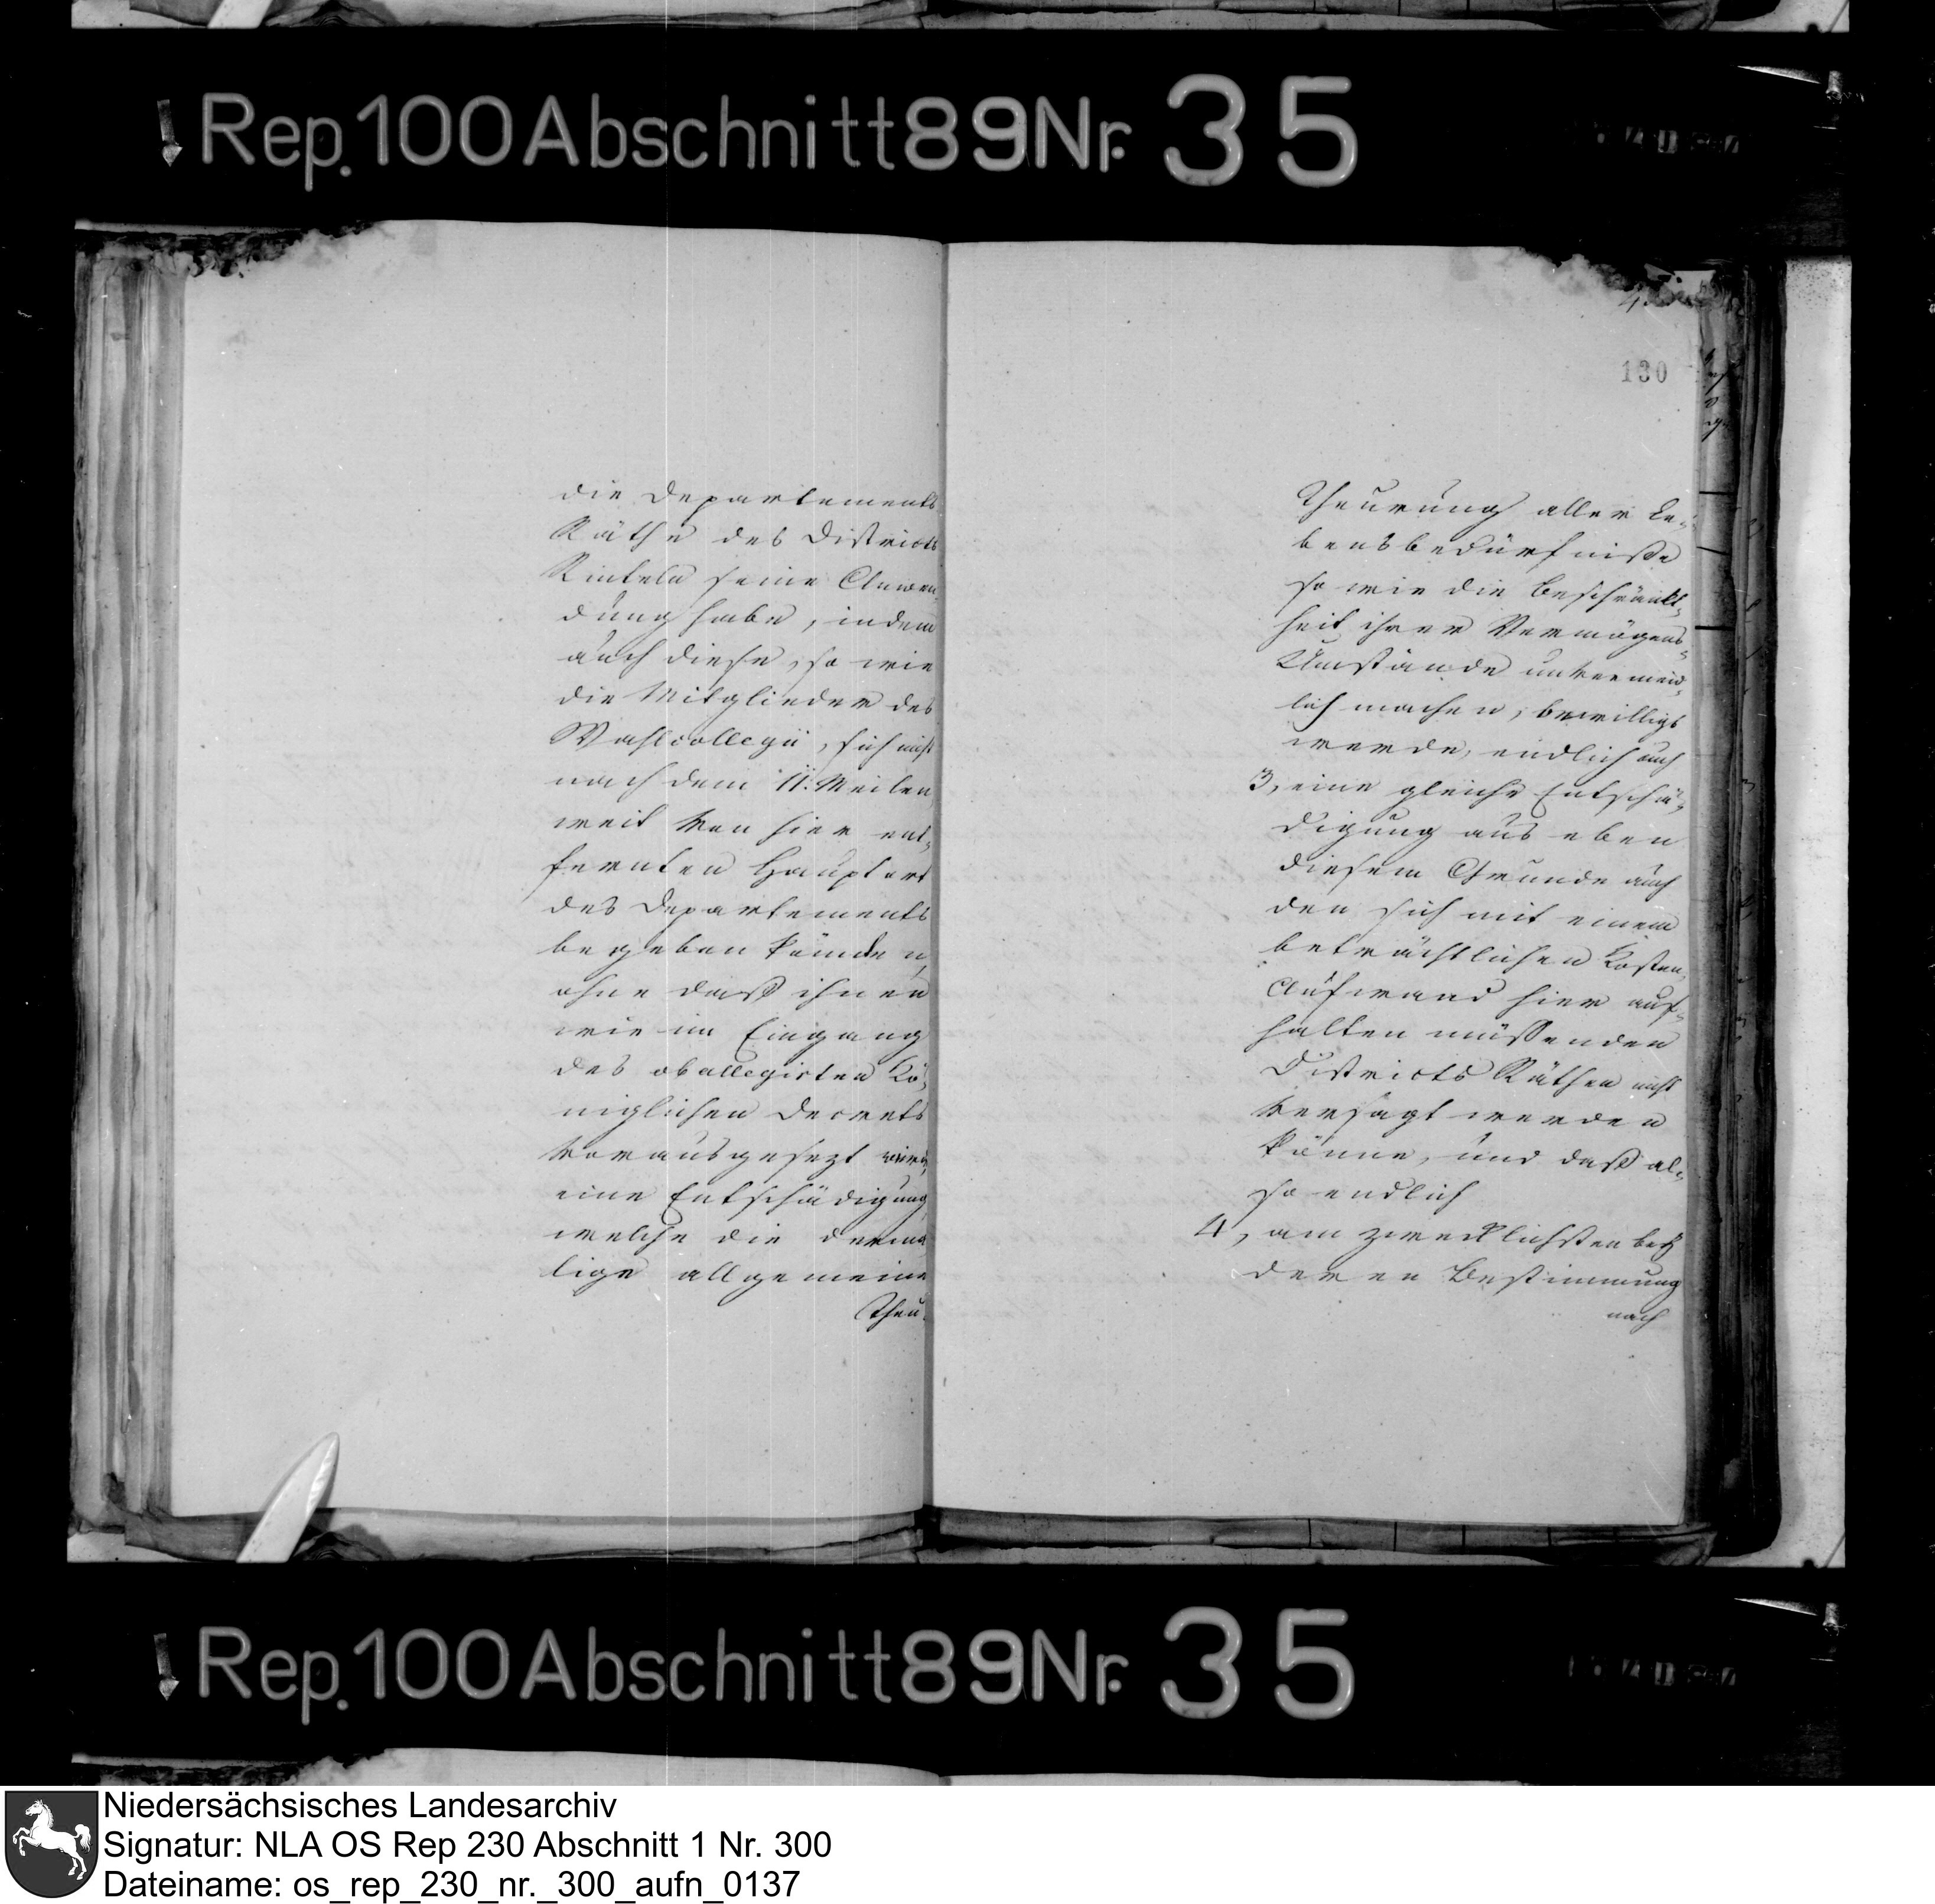 Rep. 100 Abschnitt 89 Nr. 35
130
die Departements
Räthe des Districts
Rinteln seine Anwen-
dung habe, indem
auch diese, so wie
die Mitglieder des
Wahlcollegii, sich nicht
nach dem 11. Meilen
weit von hier ent-
fernten Hauptort
des Departements
begeben könnten,
ohne daß ihnen
wie im Eingang
des oballegirten Kö-
niglichen Decrets
vorausgesezt wird,
eine Entschädigung
welche die derma
lige allgemeine
Theu-
Theurung aller Le-
bensbedürfniße
so wie die Beschränkt-
heit ihrer Vermögens-
Umstände unvermeid-
lich machen, bewilligt
werde, endlich auch
3, eine gleiche Entschä-
digung aus eben
diesem Grunde auch
den sich mit einem
beträchtlichen Kosten-
Aufwand hier auf-
halten müssenden
Districts Räthen nicht
versagt werden
könne, und daß al-
so endlich
4, am zwecklichsten bey
deren Bestimmung
nach
Rep. 100 Abschnitt 89 Nr. 35
Niedersächsisches Landesarchiv
Signatur: NLA OS Rep 230 Abschnitt 1 Nr. 300
Dateiname: os_rep_230_nr._300_aufn_0137